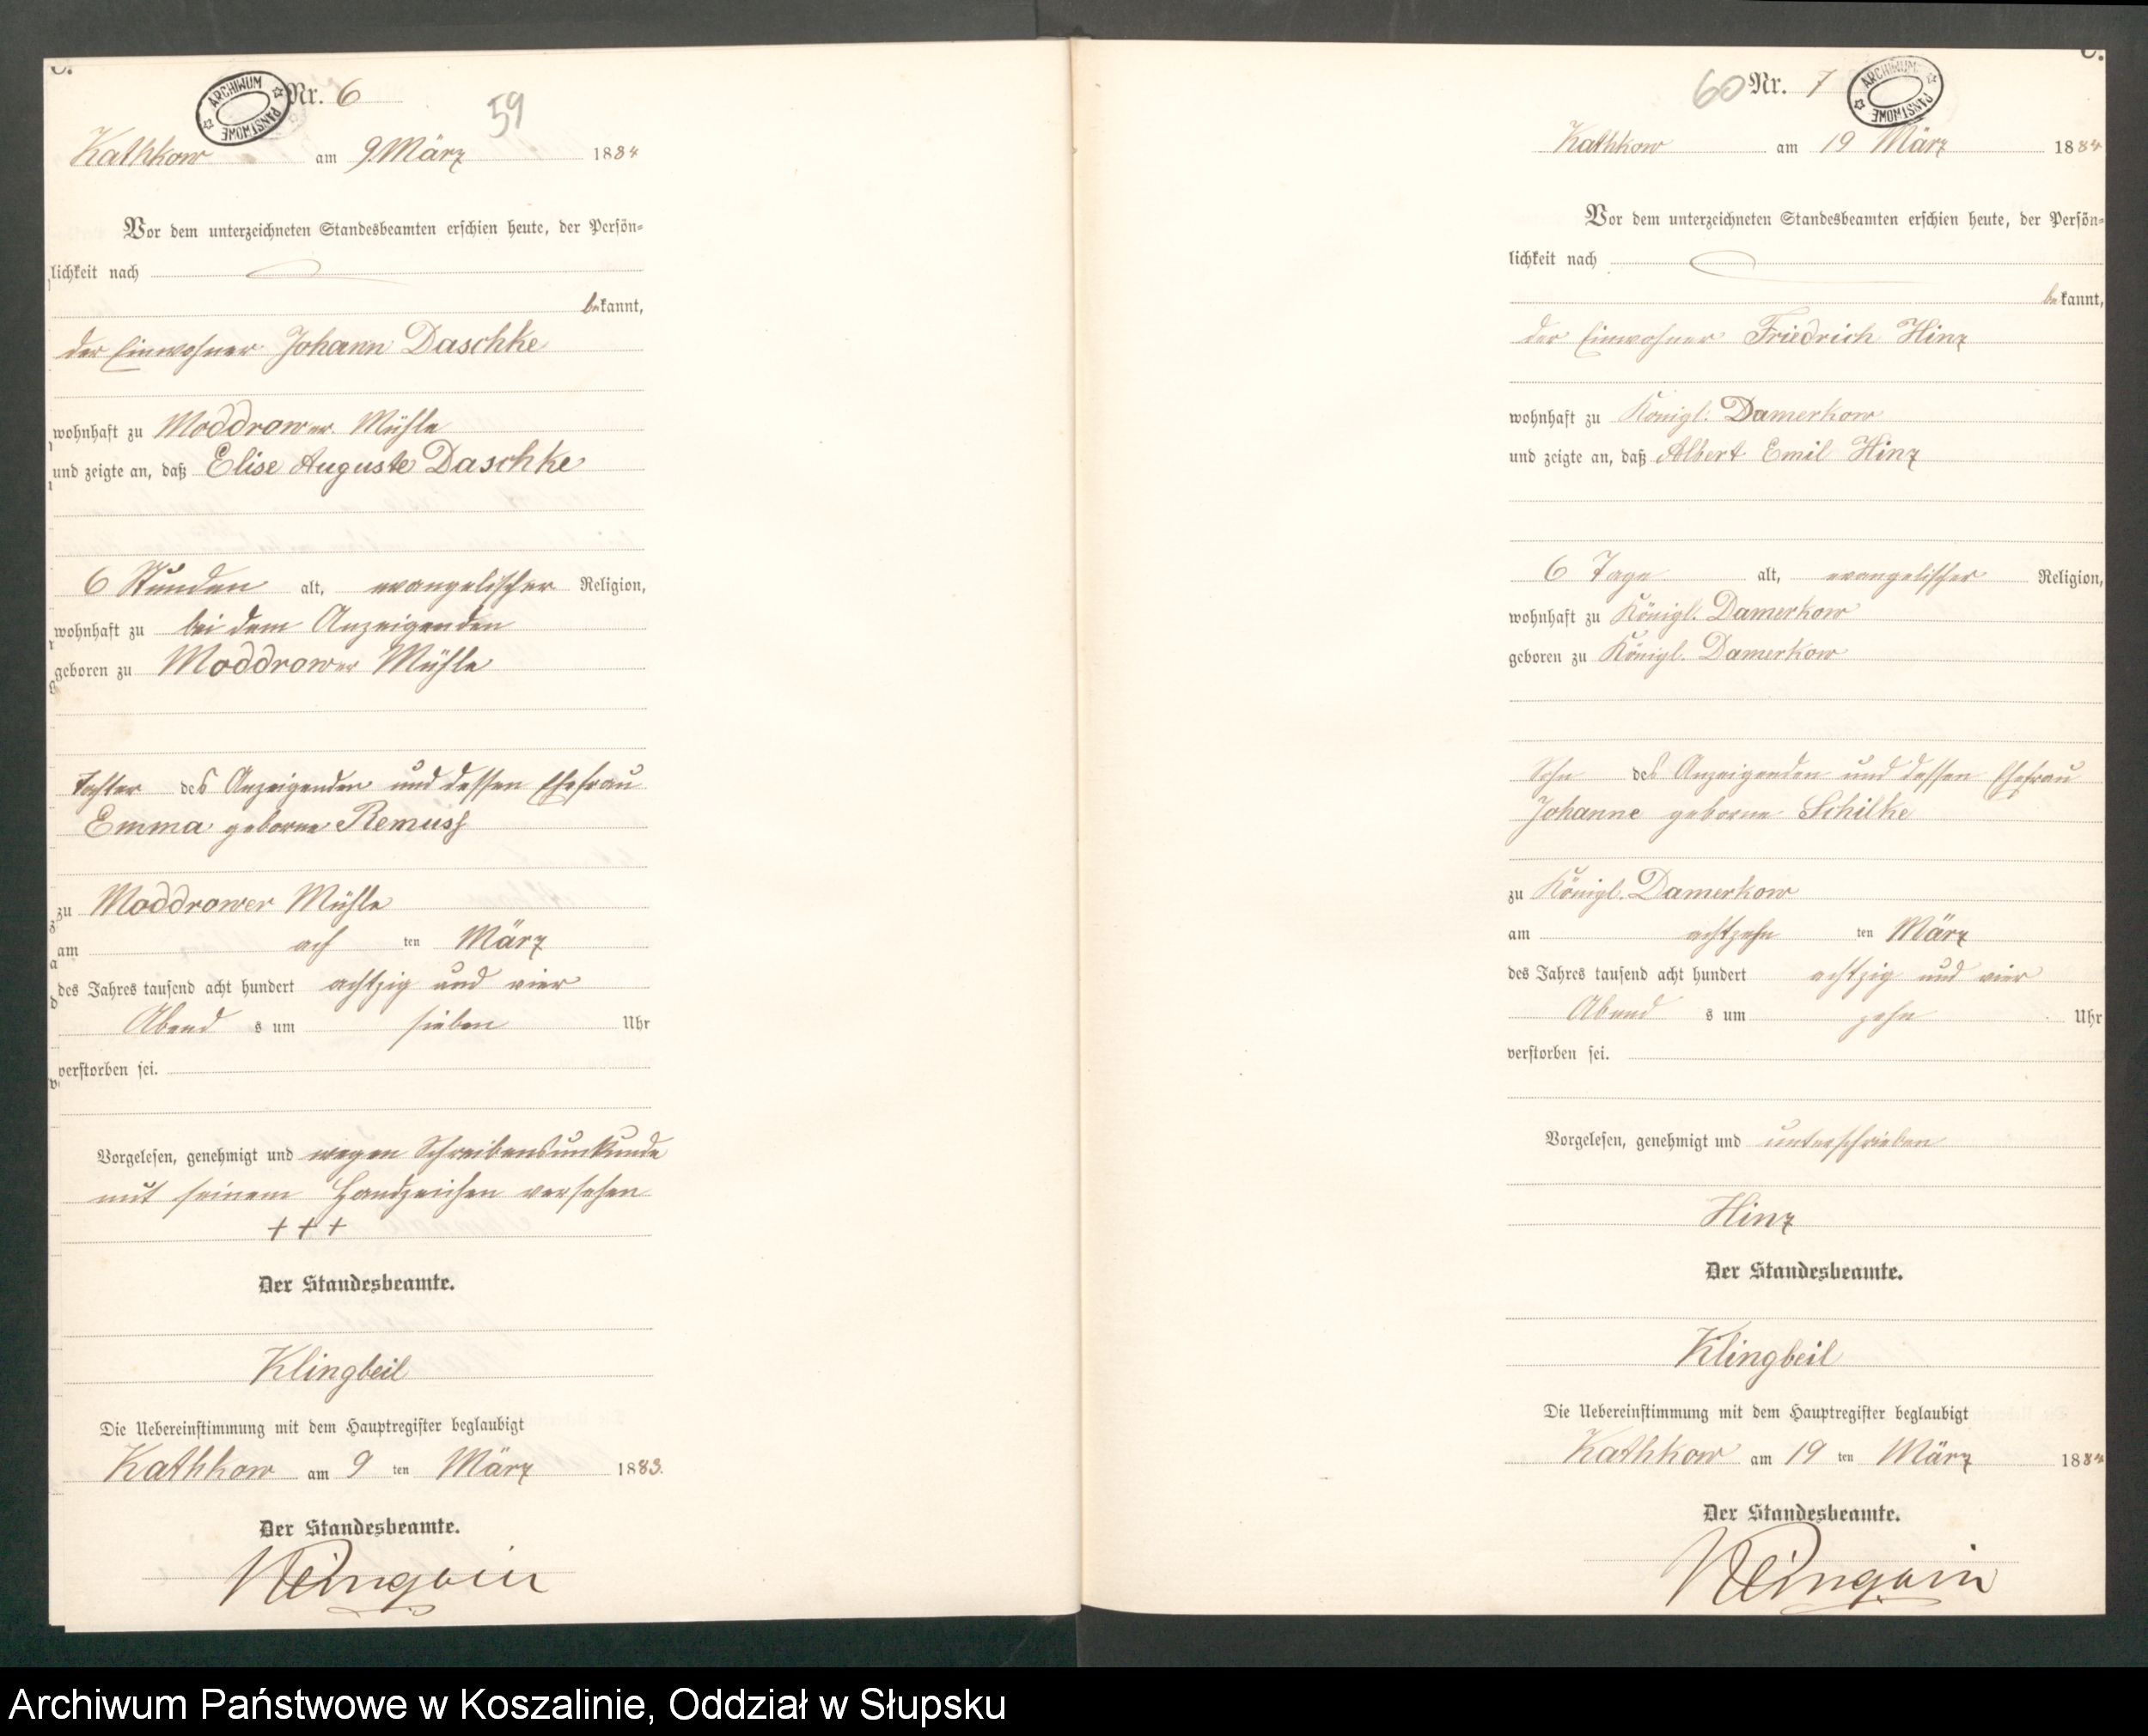 C.
ARCHIWUM PAŃSTWOWE
Nr. 6
59
Kathkow am 9. März 1884
Vor dem unterzeichneten Standesbeamten erschien heute, der Persön-
lichkeit nach
bekannt,
der Einwohner Johann Daschke
wohnhaft zu Moddrower Mühle
und zeigte an, daß Elise Auguste Daschke
6 Stunden alt, evangelischer Religion,
wohnhaft zu bei dem Anzeigenden
geboren zu Moddrower Mühle
Tochter des Anzeigenden und dessen Ehefrau
Emma geborne Remuss
zu Moddrower Mühle
am ach ten März
des Jahres tausend acht hundert achtzig und vier
Abend s um sieben Uhr
verstorben sei.
Vorgelesen, genehmigt und wegen Schreibensunkunde
mit seinem Handzeichen versehen
+++
Der Standesbeamte.
Klingbeil
Die Uebereinstimmung mit dem Hauptregister beglaubigt
Kathkow am 9 ten März 1883.
Der Standesbeamte.
C.
60 Nr. 7
ARCHIWUM PAŃSTWOWE
Kathkow am 19 März 1884
Vor dem unterzeichneten Standesbeamten erschien heute, der Persön-
lichkeit nach
bekannt,
der Einwohner Friedrich Hinz
wohnhaft zu Königl. Damerkow
und zeigte an, daß Albert Emil Hinz
6 Tage alt, evangelischer Religion,
wohnhaft zu Königl. Damerkow
geboren zu Königl. Damerkow
Sohn des Anzeigenden und dessen Ehefrau
Johanne geborne Schilke
zu Königl. Damerkow
am achtzehn ten März
des Jahres tausend acht hundert achtzig und vier
Abend s um zehn Uhr
verstorben sei.
Vorgelesen, genehmigt und unterschrieben
Hinz
Der Standesbeamte.
Klingbeil
Die Uebereinstimmung mit dem Hauptregister beglaubigt
Kathkow am 19 ten März 1884
Der Standesbeamte.
Archiwum Państwowe w Koszalinie, Oddział w Słupsku